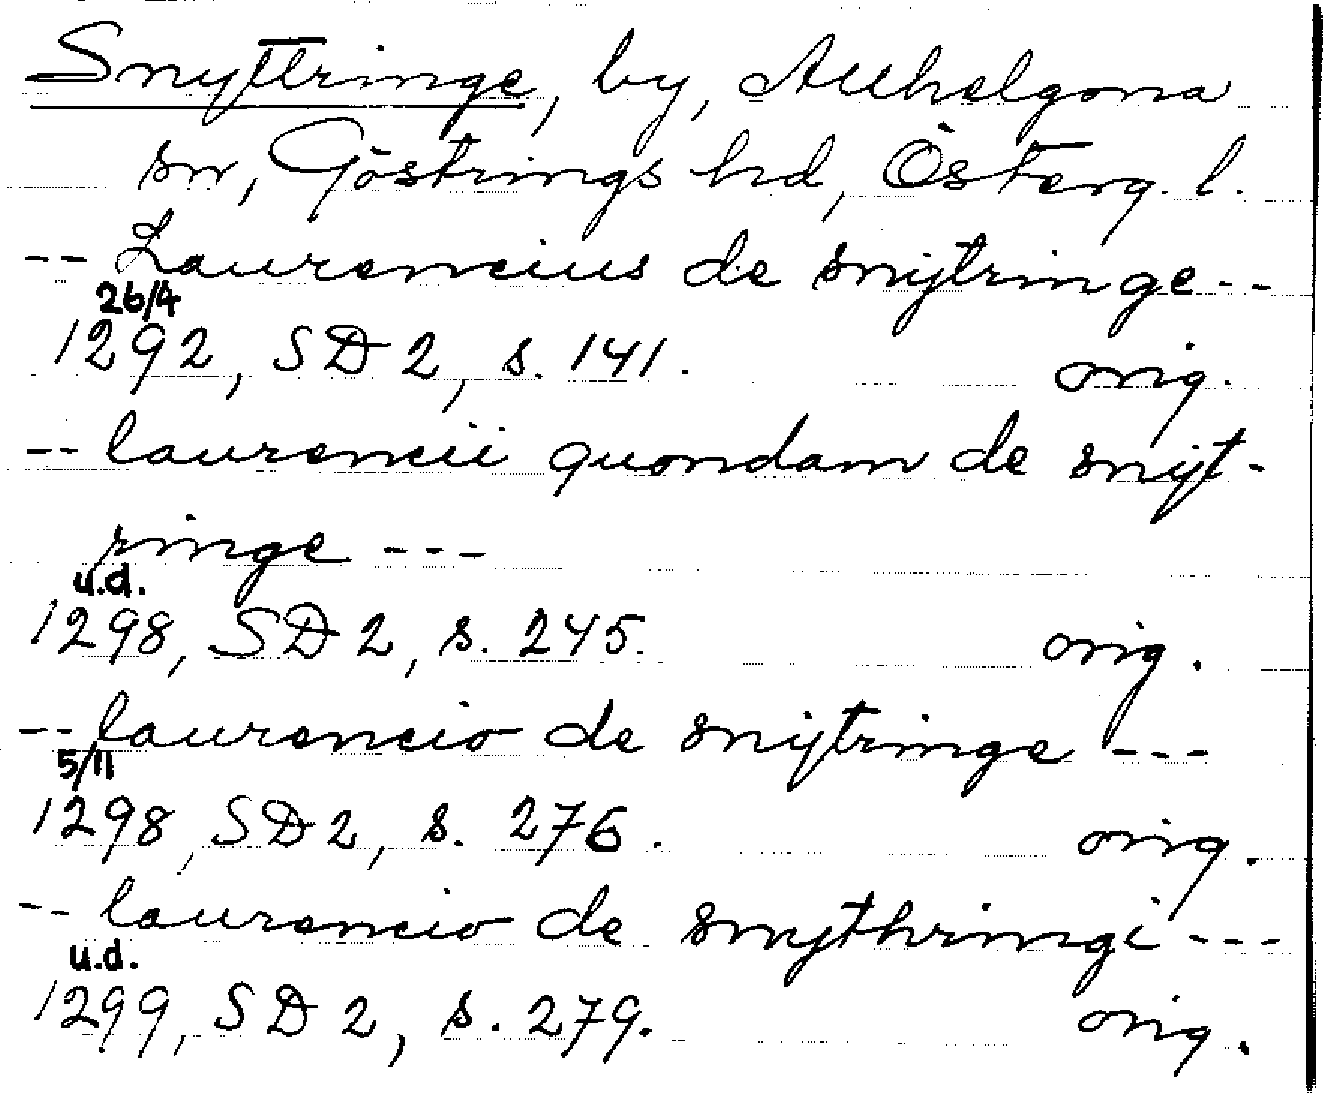 Snytringe, by, Allhelgona
sn, Göstrings hd, Österg. l.
-- Laurencius de snÿtringe --
26/4
1292, SD 2, s. 141. orig.
-- laurencii quondam de snÿt-
ringe ---
u.d.
1298, SD 2, s. 245. orig.
-- laurencio de snÿtringe ---
5/11
1298, SD 2, s. 276. orig.
-- laurencio de snÿthringi ---
u.d.
1299, SD 2, s. 279. orig.